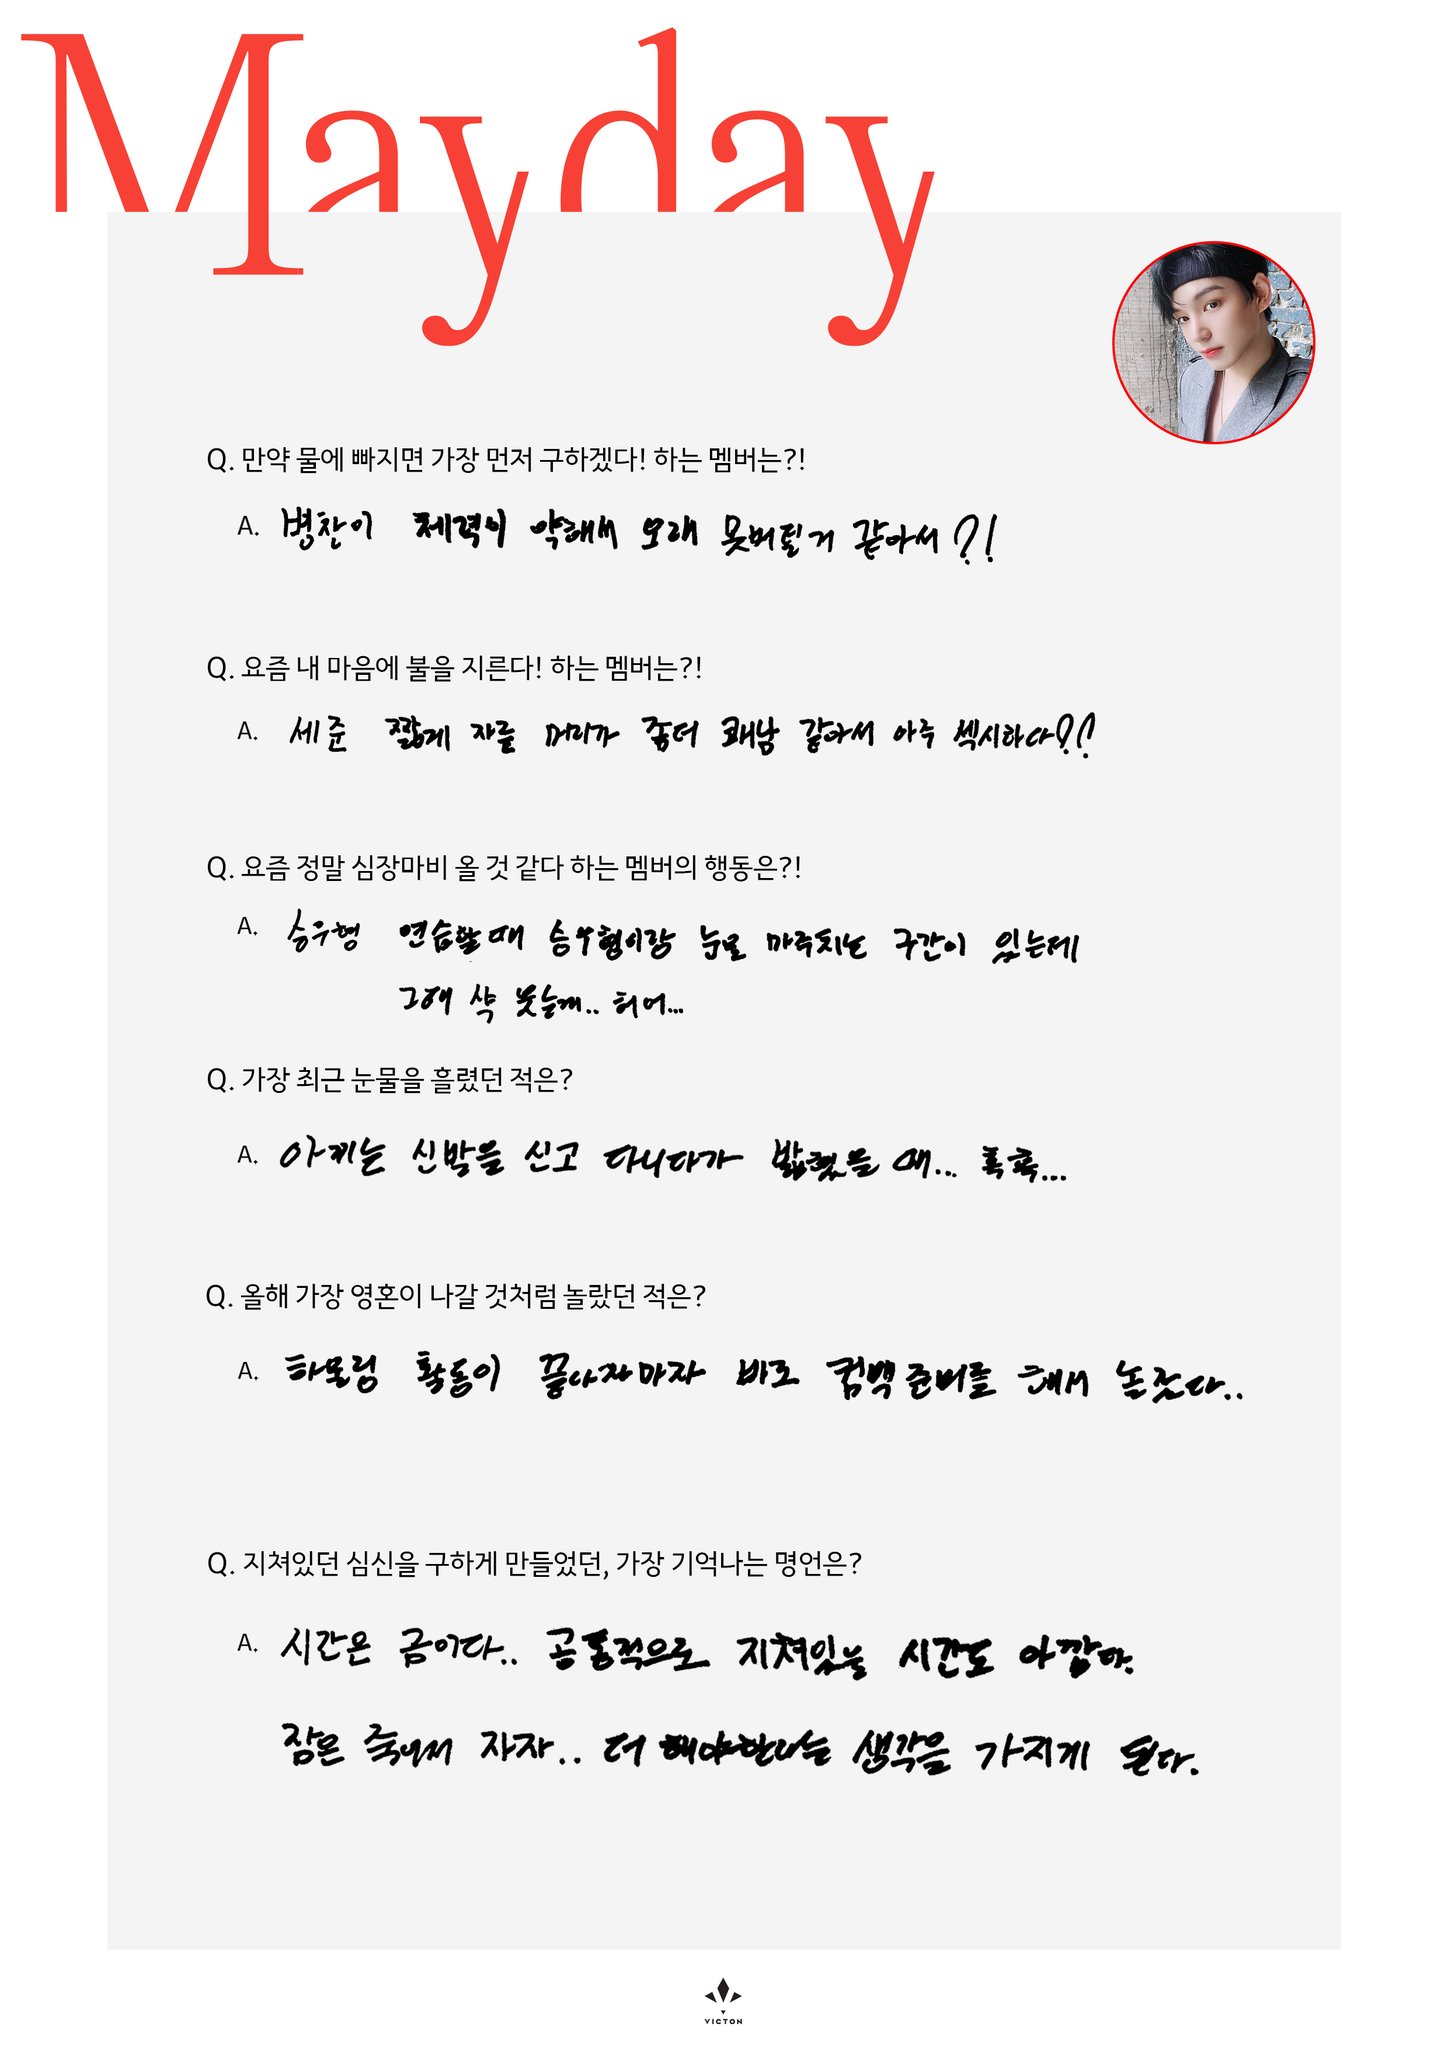 Mayday
Q. 만약 물에 빠지면 가장 먼저 구하겠다! 하는 멤버는?!
A. 병찬이 체력이 약해서 오래 못버틸거 같아서?!
Q. 요즘 내 마음에 불을 지른다! 하는 멤버는?!
A. 세준 짧게 자른 머리가 좀더 쾌남 같아서 아주 섹시하다??
Q. 요즘 정말 심장마비 올 것 같다 하는 멤버의 행동은?!
A. 승우형 연습할때 승우형이랑 눈을 마주치는 구간이 있는데
그때 살짝 못늘게.. 허어...
Q. 가장 최근 눈물을 흘렸던 적은?
A. 아끼는 신발을 신고 다니다가 밟혔을 때... 흑흑...
Q. 올해 가장 영혼이 나갈 것처럼 놀랐던 적은?
A. 하울링 활동이 끝나자마자 바로 컴백준비를 해서 놀랐다..
Q. 지쳐있던 심신을 구하게 만들었던, 가장 기억나는 명언은?
A. 시간은 금이다.. 공통적으로 지쳐있는 시간도 아깝다.
잠은 죽어서 자자.. 더 해야한다는 생각을 가지게 된다.
VICTON